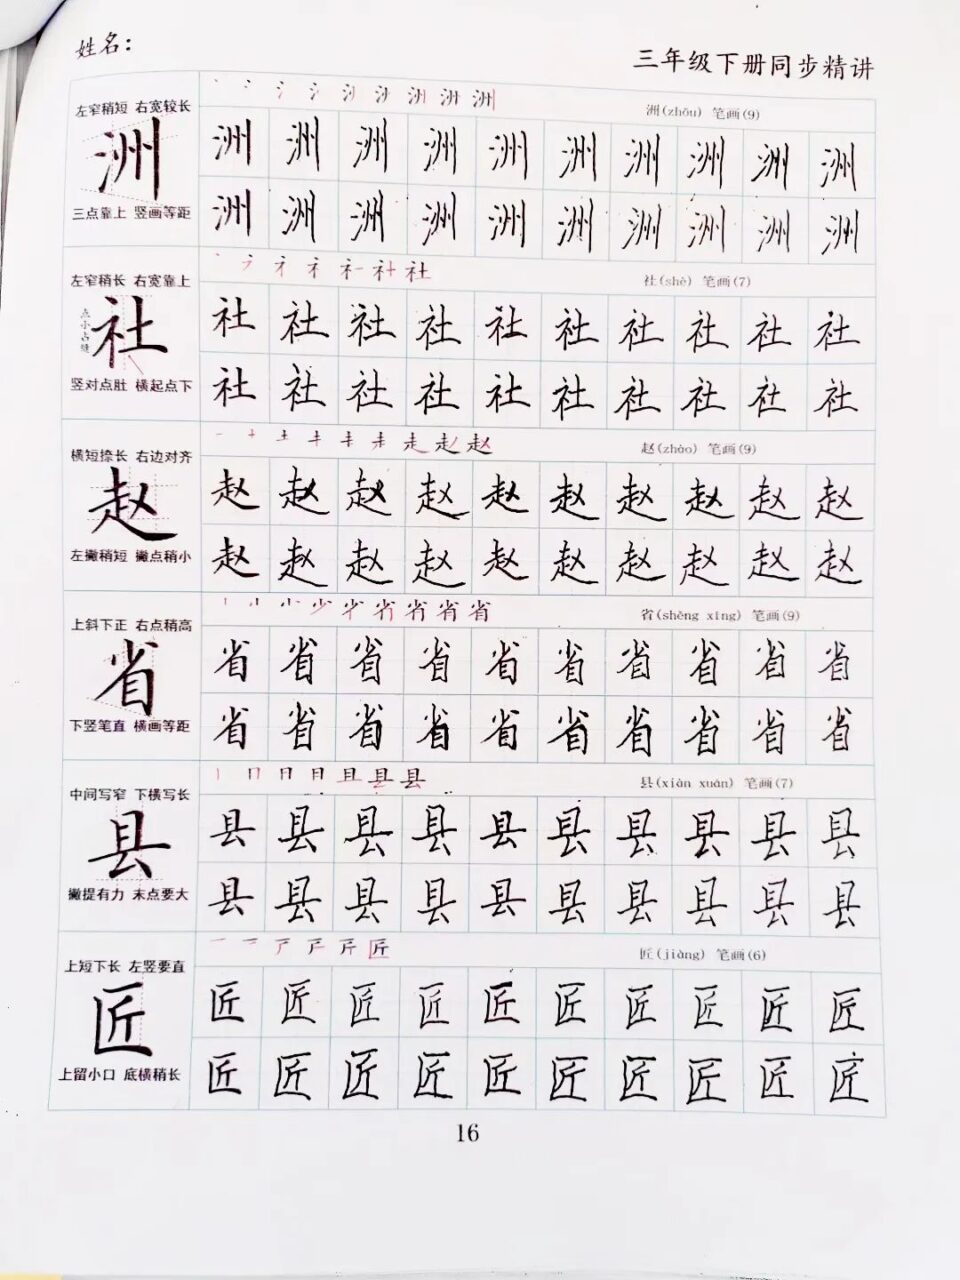 姓名：
三年级下册同步精讲
左窄稍短 右宽较长
洲(zhōu) 笔画(9)
洲
洲 洲 洲 洲 洲 洲 洲 洲 洲 洲
洲 洲 洲 洲 洲 洲 洲 洲 洲 洲
三点靠上 竖画等距
左窄稍长 右宽靠上
社(shè) 笔画(7)
点小占缝
社
社 社 社 社 社 社 社 社 社 社
社 社 社 社 社 社 社 社 社 社
竖对点肚 横起点下
横短捺长 右边对齐
赵(zhào) 笔画(9)
赵
赵 赵 赵 赵 赵 赵 赵 赵 赵 赵
赵 赵 赵 赵 赵 赵 赵 赵 赵 赵
左撇稍短 撇点稍小
上斜下正 右点稍高
省(shěng xǐng) 笔画(9)
省
省 省 省 省 省 省 省 省 省 省
省 省 省 省 省 省 省 省 省 省
下竖笔直 横画等距
中间写窄 下横写长
县(xiàn xuán) 笔画(7)
县
县 县 县 县 县 县 县 县 县 县
县 县 县 县 县 县 县 县 县 县
撇提有力 末点要大
上短下长 左竖要直
匠(jiàng) 笔画(6)
匠
匠 匠 匠 匠 匠 匠 匠 匠 匠 匠
匠 匠 匠 匠 匠 匠 匠 匠 匠 匠
上留小口 底横稍长
16